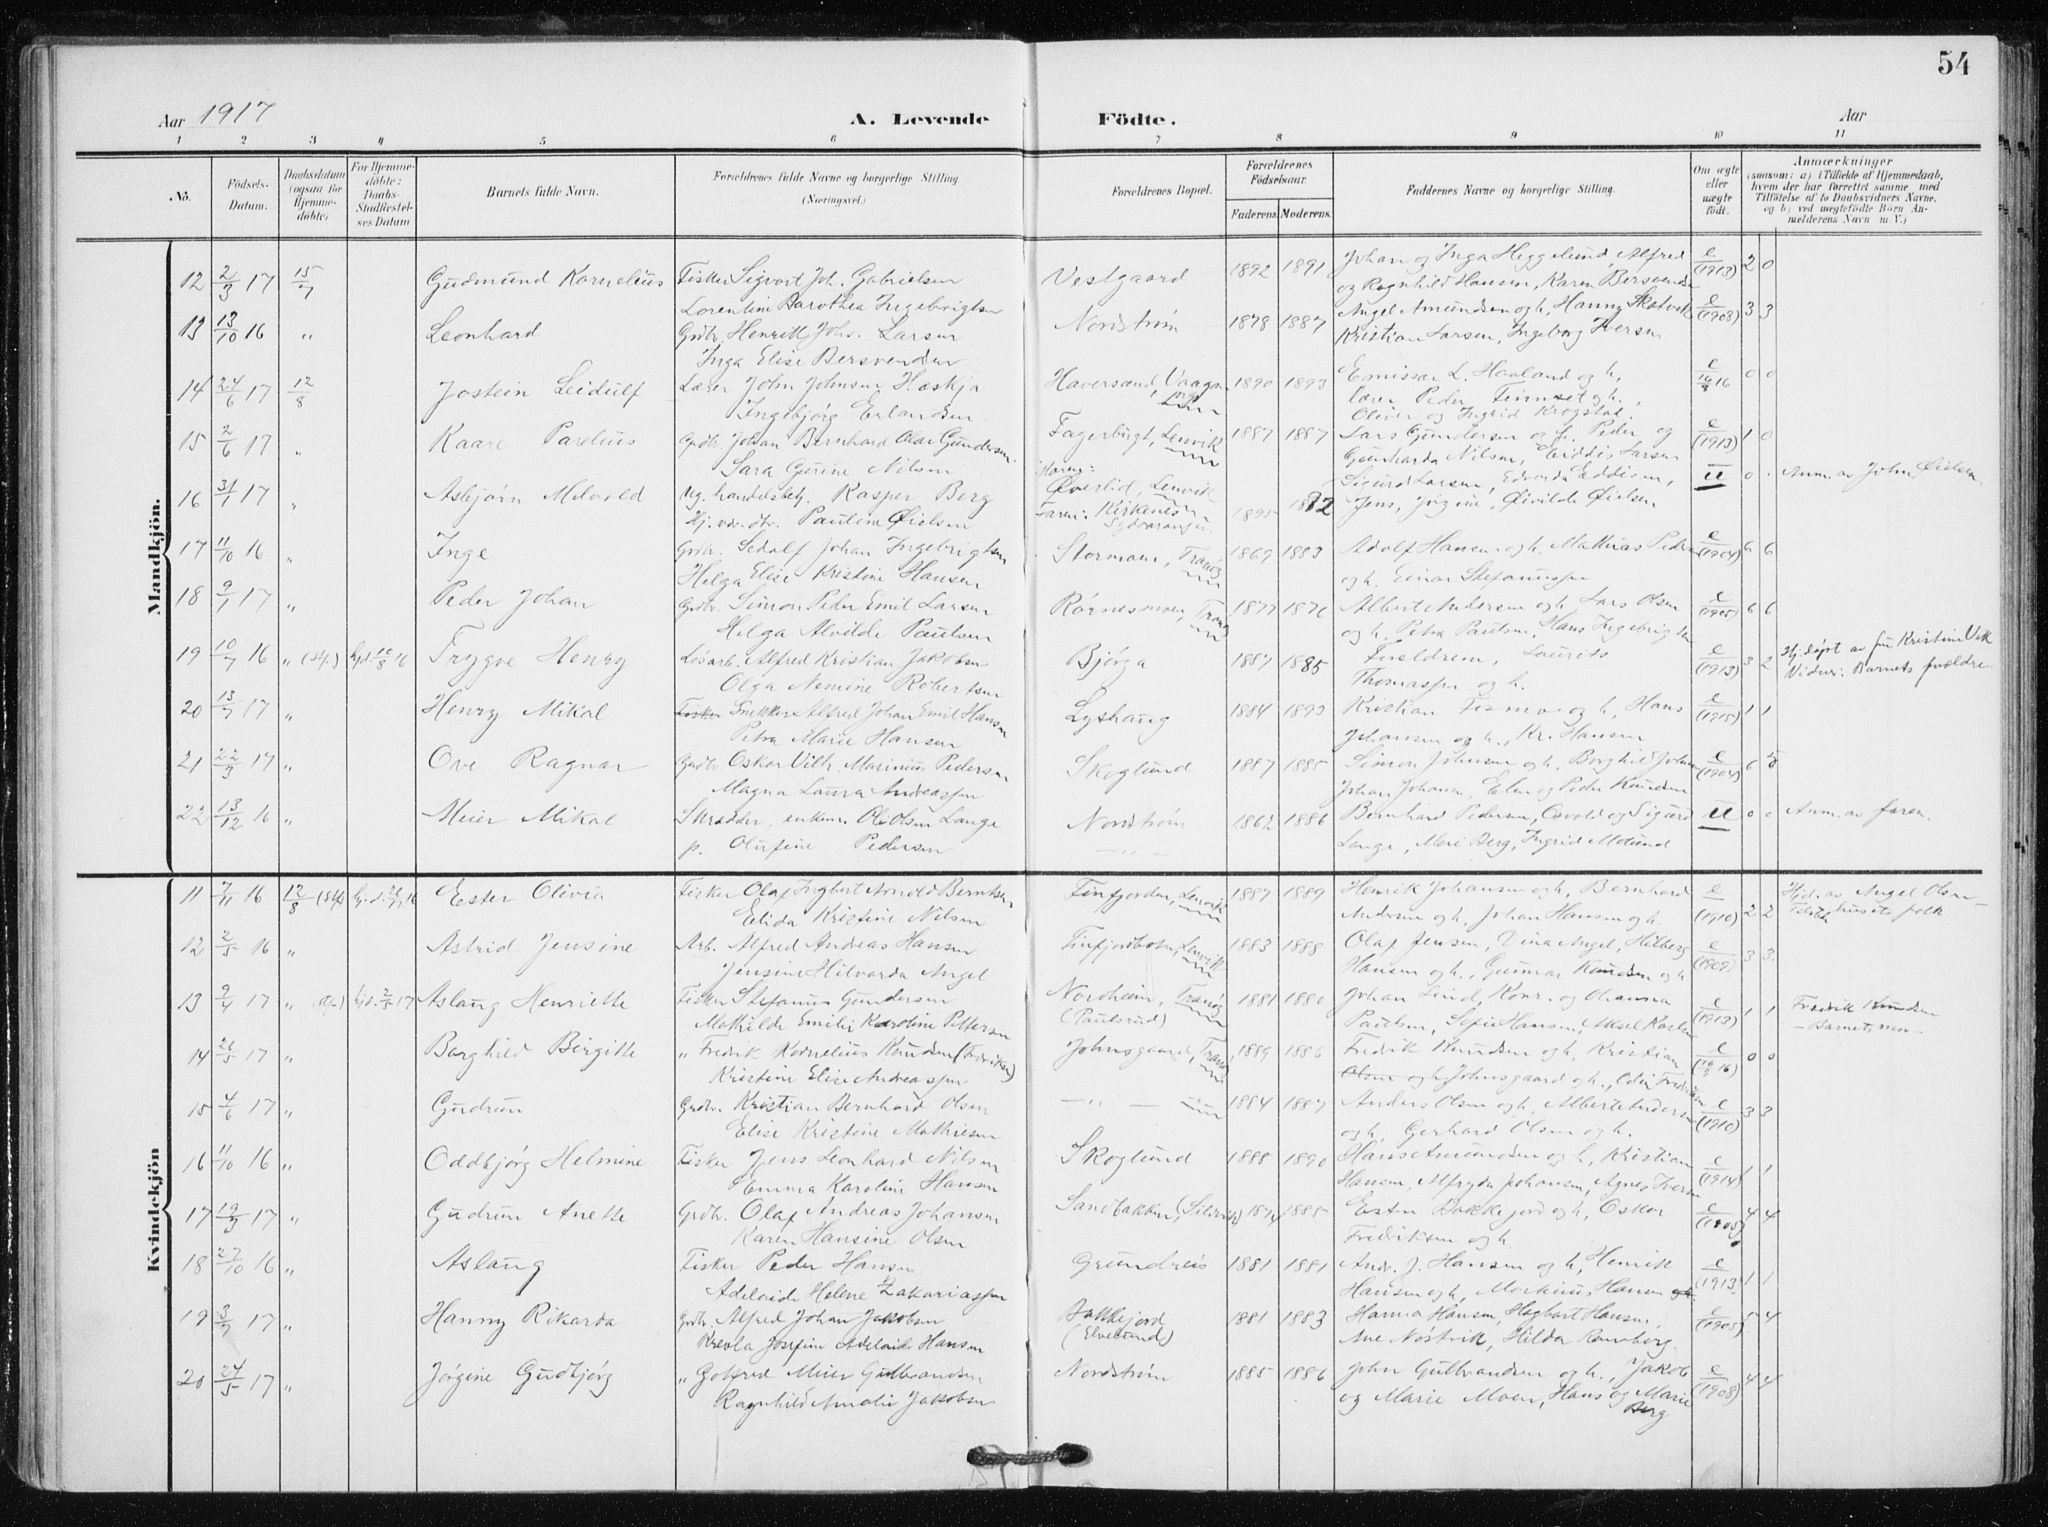 54
Aar 1917 A. Levende Födte. Aar
1 2 3 4 5 6 7 8 9 10 11
No. Födsels-Datum. Daabsdatum (ogsaa for Hjemme-döbte) For Hjemme-döbte: Daabs-Stadfæstel-ses Datum Barnets fulde Navn. Forældrenes fulde Navne og borgerlige Stilling (Næringsvei.) Forældrenes Bopæl. Forældrenes Födselsaar. Faderens. Moderens. Faddernes Navne og borgerlige Stilling. Om ægte eller uægte födt. Anmærkninger (saasom: a) i Tilfælde af Hjemmedaab, hvem der har forrettet samme med Tilföielse af to Daabsvidners Navne. og b) ved uægtefödte Börn An-melderens Navn m. V.)
Mandkjön.
12 2/3 17 15/7 Gudmund Kornelius Fisker Sigvart Joh. Gabrielsen Vestgaard 1892 1891 Johan og Inga Heggelund, Alfred e (1913) 2 0
Lorentine Dorothea Ingebrigtsen og Ragnhild Hansen, Karen Bersvendsen
13 13/10 16 " Leonhard Grdbr. Henrik Joh. Larsen Nordstrøm 1878 1887 Angel Amundsen og h., Hanny Skatvik e (1908) 3 3
Inga Elise Bersvendsen Kristian Larsen, Ingeborg Iversen
14 24/6 17 12/8 Jostein Leidulf Lærer John Johnsen Hæskja Haversand, Vaagan 1890 1893 Emissær L. Haaland og h. e 16/8 16 0 0
Ingebjørg Erlandsen Lærer Peder Finnset og h.,
Oliver og Ingrid Krogstad.
15 2/6 17 " Kaare Parelius Grdbr. Johan Bernhard Olai Gundersen Fagerbugt, Lenvik 1887 1887 Lars Gundersen og h. Peder og e (1913) 1 0
Sara Gurine Nilsen Gunharda Nilsen, Larsen
16 31/1 17 " Asbjørn Melvold Ug. handelsbetj. Kasper Berg Moren: Øverlid, Lenvik Sigurd Larsen, Edvarda Eddisen, u 0 Anm. av John Øielsen.
Hj. vær. dtr. Pauline Øielsen Faren: Kirkenes Sydvaranger. 1895 1892 Jens, Jørgine, Øivilde Øielsen
17 11/10 16 " Inge Grdbr. Sedolf Johan Ingebrigtsen Stormoen, Tranøy 1869 1883 Adolf Hansen og h. Mathias Pedersen e (1904) 6 6
Helga Elise Kristine Hansen og h. Einar Stefanussen
18 9/1 17 " Peder Johan Grdbr. Simon Peder Emil Larsen Rørnesmoen, Tranøy 1877 1876 Albert Andersen og h. Lars Olsen e (1905) 6 6
Helga Alvilde Paulsen og h. Petra Paulsen, Hans Ingebrigtsen
19 10/7 16 " (stf.) hjd. 10/8 16 Trygve Henry Løsarb. Alfred Kristian Jakobsen Bjørga 1887 1885 Forældrene, Laurits e (1913) 3 2 Hj. døpt av fru Kristine Vik
Olga Nemine Robertsen Thomassen og h. Vidner: Barnets forældre.
20 13/7 17 " Henry Mikal Fisker Snekker Alfred Johan Emil Hansen Lyshaug 1884 1893 Kristian Fismo og h, Hans e (1915) 1 1
Petra Marie Hansen Johansen og h., Kr. Hansen
21 22/3 17 " Ove Ragnar Grdbr. Oskar Vilh. Marinius Pedersen Skoglund 1887 1885 Simon Johnsen og h., Borghild Johnsen e (1904) 6 5
Magna Laura Andreassen Johan Johansen, Elen og Peder Knudsen
22 13/12 16 " Meier Mikal Skrædder, enkem. Ole Olsen Lange Nordstrøm 1862 1886 Bernhard Pedersen, Osvald og Sigurd u 0 0 Anm. av faren.
p. Olufine Pedersen — " — Lange, Meri Berg, Ingrid Molund
Kvindekjön
11 7/11 16 12/8 (stf.) hj. d. 26/11 16 Ester Olivia Fisker Olaf Ingbert Arnold Berntsen Finfjorden, Lenvik 1887 1889 Henrik Johansen og h., Bernhard e (1910) 2 2 Hjd. av Angel Olsen
Elida Kristine Nilsen Andersen og h., Johan Hansen og h. husets folk
12 2/5 16 " Astrid Jensine Arb. Alfred Andreas Hansen Finfjordbotn, Lenvik 1883 1888 Olaf Jensen, Dina Angel, Hilberg e (1909) 3 3
Jensine Hilvarda Angel Hansen og h., Gunnar Knudsen og h
13 9/4 17 " (stf.) hjd. 2/5 17 Aslaug Henriette Fisker Stefanus Gundersen Nordheim, Tranøy 1881 1880 Johan Lind, Konr. og Johanna e (1913) 1 1 Fredrik Knudsen
Mathilde Emilie Karoline Pettersen (Paulsrud) Paulsen, Sofie Hansen, Aksel Karlsen — Barnets mor —
14 26/5 17 " Borghild Birgitte " Fredrik Kornelius Knudsen (Fredriksen) Johnsgaard, Tranøy 1889 1886 Fredrik Knudsen og h., Kristian e 16 0 0
Kristine Elise Andreassen Olsen og h Johnsgaard og h., Odin Fredriksen
15 4/6 17 " Gudrun Grdbr. Kristian Bernhard Olsen — " — 1884 1887 Anders Olsen og h., Albert Andersen e (1910) 3 3
Elise Kristine Mathisen og h. Gerhard Olsen og h.
16 11/10 16 " Oddbjørg Helmine Fisker Jens Leonhard Nilsen Skoglund 1888 1890 Hans Amundsen og h., Kristian e (1914) 1 1
Emma Karoline Hansen Hansen, Alfryda Johansen, Agnes Iversen
17 19/3 17 " Gudrun Anette Grdbr. Olaf Andreas Johansen Sandbakken, (Sildvik) 1874 1885 Ester Bakkejord og h, Oskar e (1905) 4 4
Karen Hansine Olsen Fredriksen og h.
18 27/10 16 " Aslaug Fisker Peder Hansen Grundreis 1881 1881 Andr. J. Hansen og h, Henrik e (1913) 1 1
Adelaide Helene Zakariassen Hansen og h., Markius Hansen
19 3/7 17 " Hanny Rikarda Grdbr. Alfred Johan Jakobsen Bakkejord 1881 1883 Hanna Hansen, Hagbart Hansen, e (1905) 5 4
Josefine Adelaide Hansen (Elvelund) Ane Nøstvik, Hilda Kanberg.
20 24/5 17 " Jørgine Gudbjørg " Gotfred Meier Gulbrandsen Nordstrøm 1885 1886 John Gulbrandsen og h., Jakob e (1908) 4 4
Ragnhild Amalie Jakobsen og Marie Moen, Hans og Marie Berg